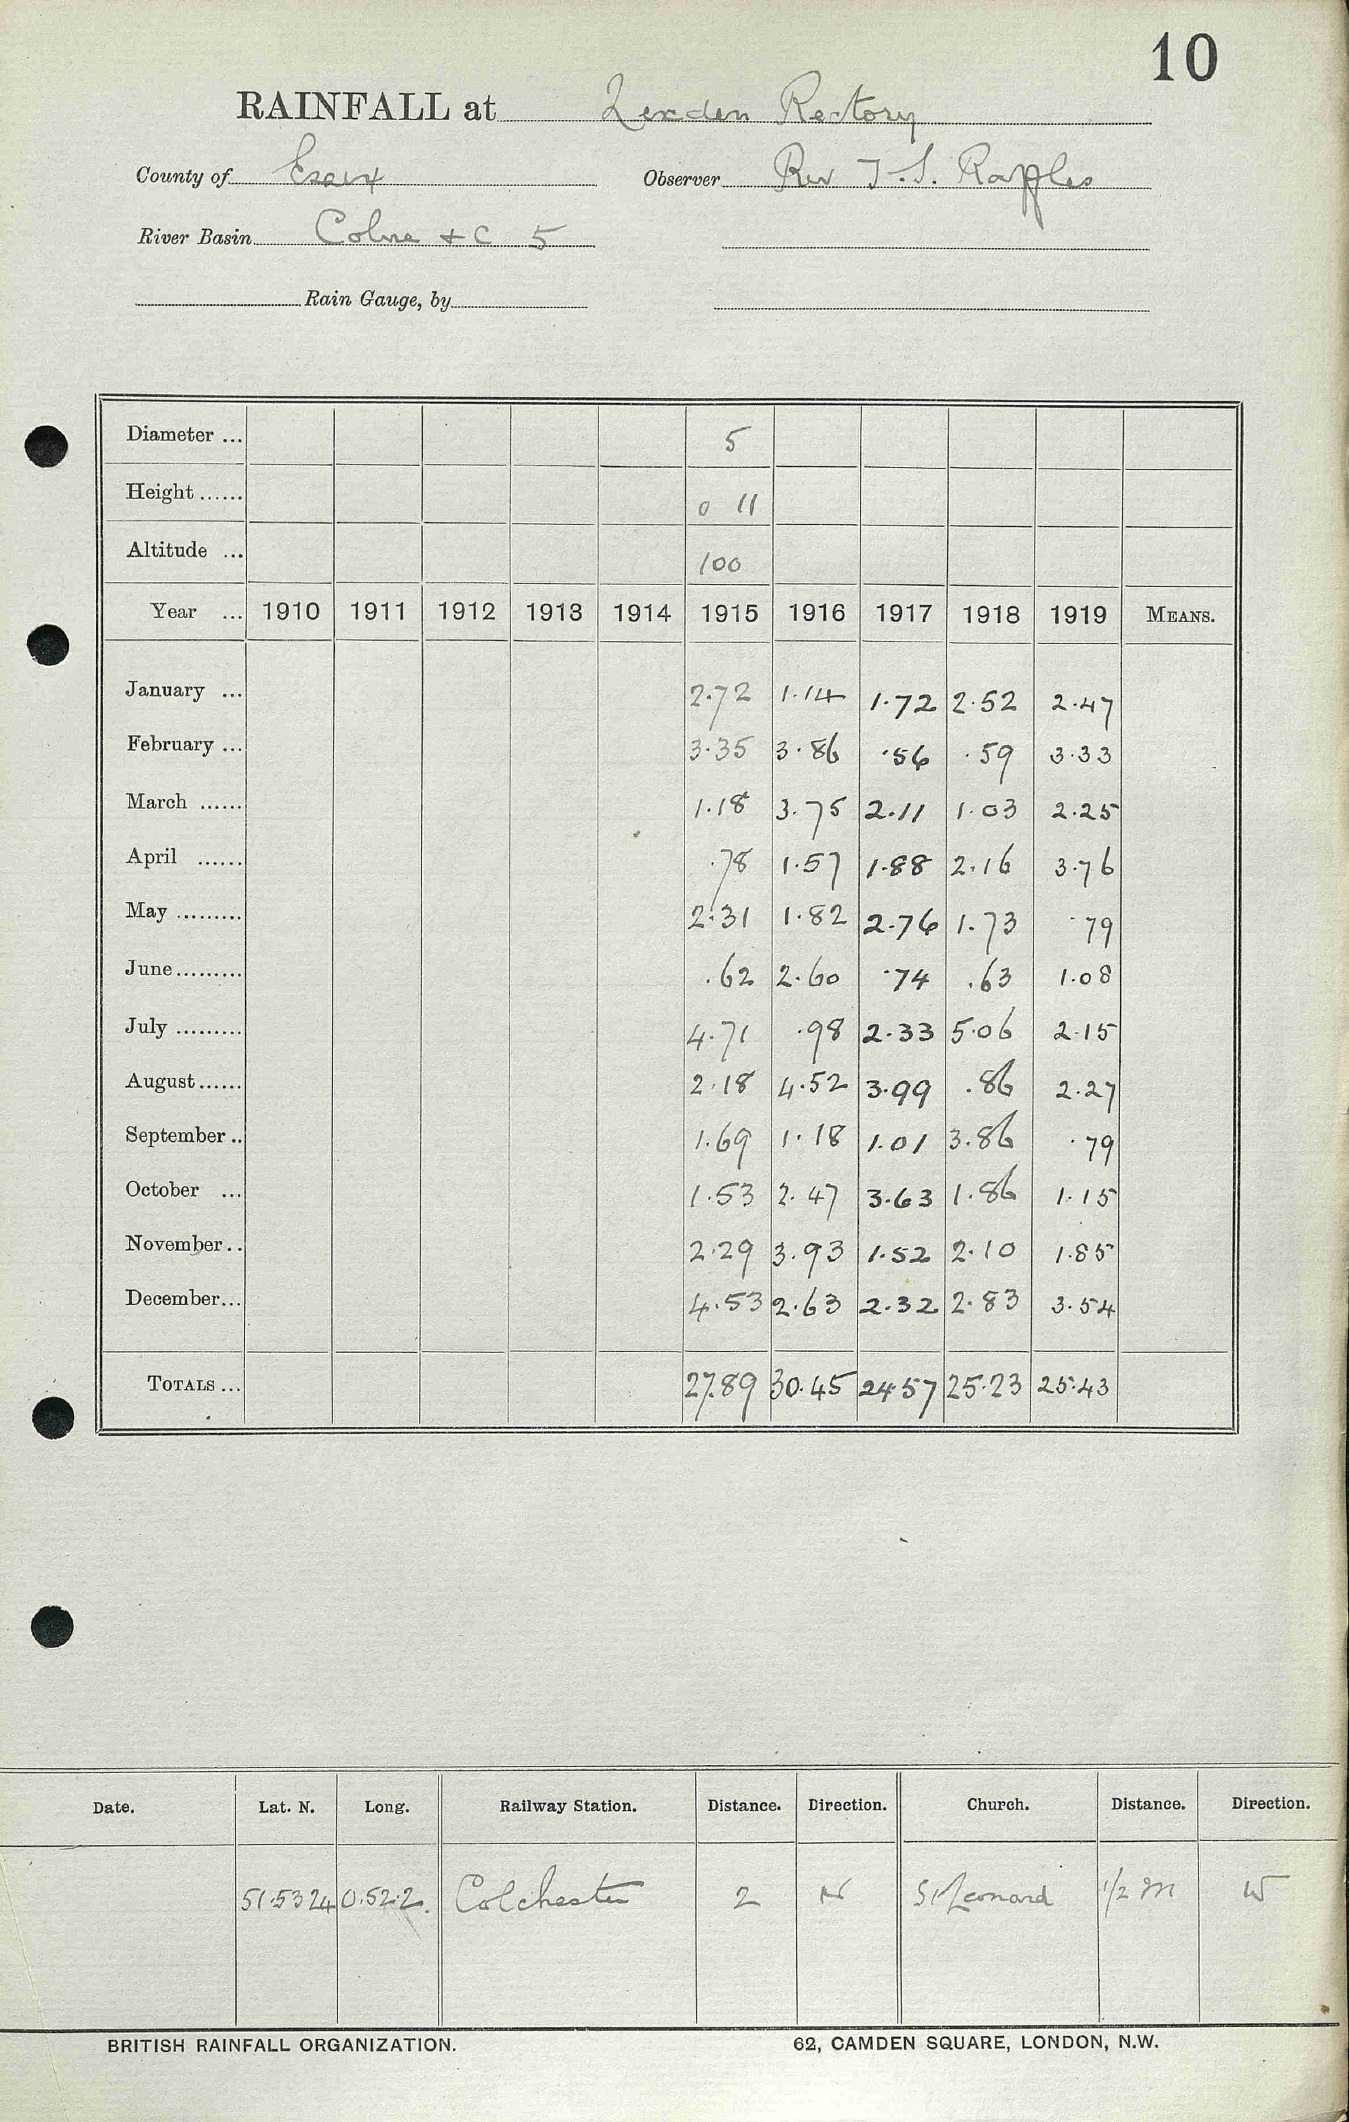 10
RAINFALL at Lexden Rectory
County of Essex Observer Rev T. S. Raffles
River Basin Colne + C 5
Rain Gauge, by
Diameter ... 5
Height ...... 0 11
Altitude ... 100
Year ... 1910 1911 1912 1913 1914 1915 1916 1917 1918 1919 MEANS.
January ... 2.72 1.14 1.72 2.52 2.47
February ... 3.35 3.86 .56 .59 3.33
March ...... 1.18 3.75 2.11 1.03 2.25
April ...... .78 1.57 1.88 2.16 3.76
May ......... 2.31 1.82 2.76 1.73 .79
June......... .62 2.60 .74 .63 1.08
July ......... 4.71 .98 2.33 5.06 2.15
August...... 2.18 4.52 3.99 .86 2.27
September .. 1.69 1.18 1.01 3.86 .79
October ... 1.53 2.47 3.63 1.86 1.15
November.. 2.29 3.93 1.52 2.10 1.85
December... 4.53 2.63 2.32 2.83 3.54
TOTALS ... 27.89 30.45 24.57 25.23 25.43
Date. Lat. N. Long. Railway Station. Distance. Direction. Church. Distance. Direction.
51.53 24 0.52.2. Colchester 2 N St Leonard 1/2 m W
BRITISH RAINFALL ORGANIZATION. 62, CAMDEN SQUARE, LONDON, N.W.